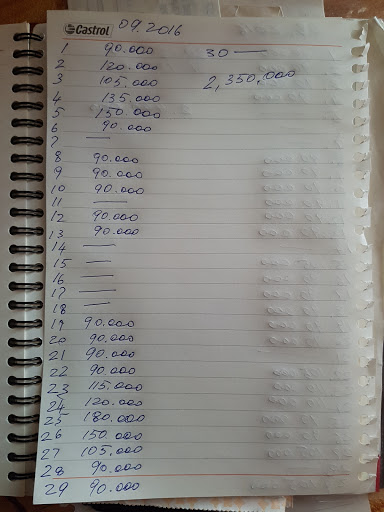 Castrol 09.2016
1 90.000 30 —
2 120.000
3 105.000 2,350,000
4 135.000
5 150.000
6 90.000
7 —
8 90.000
9 90.000
10 90.000
11 —
12 90.000
13 90.000
14 —
15 —
16 —
17 —
18 —
19 90.000
20 90.000
21 90.000
22 90.000
23 115.000
24 120.000
25 180.000
26 150.000
27 105.000
28 90.000
29 90.000